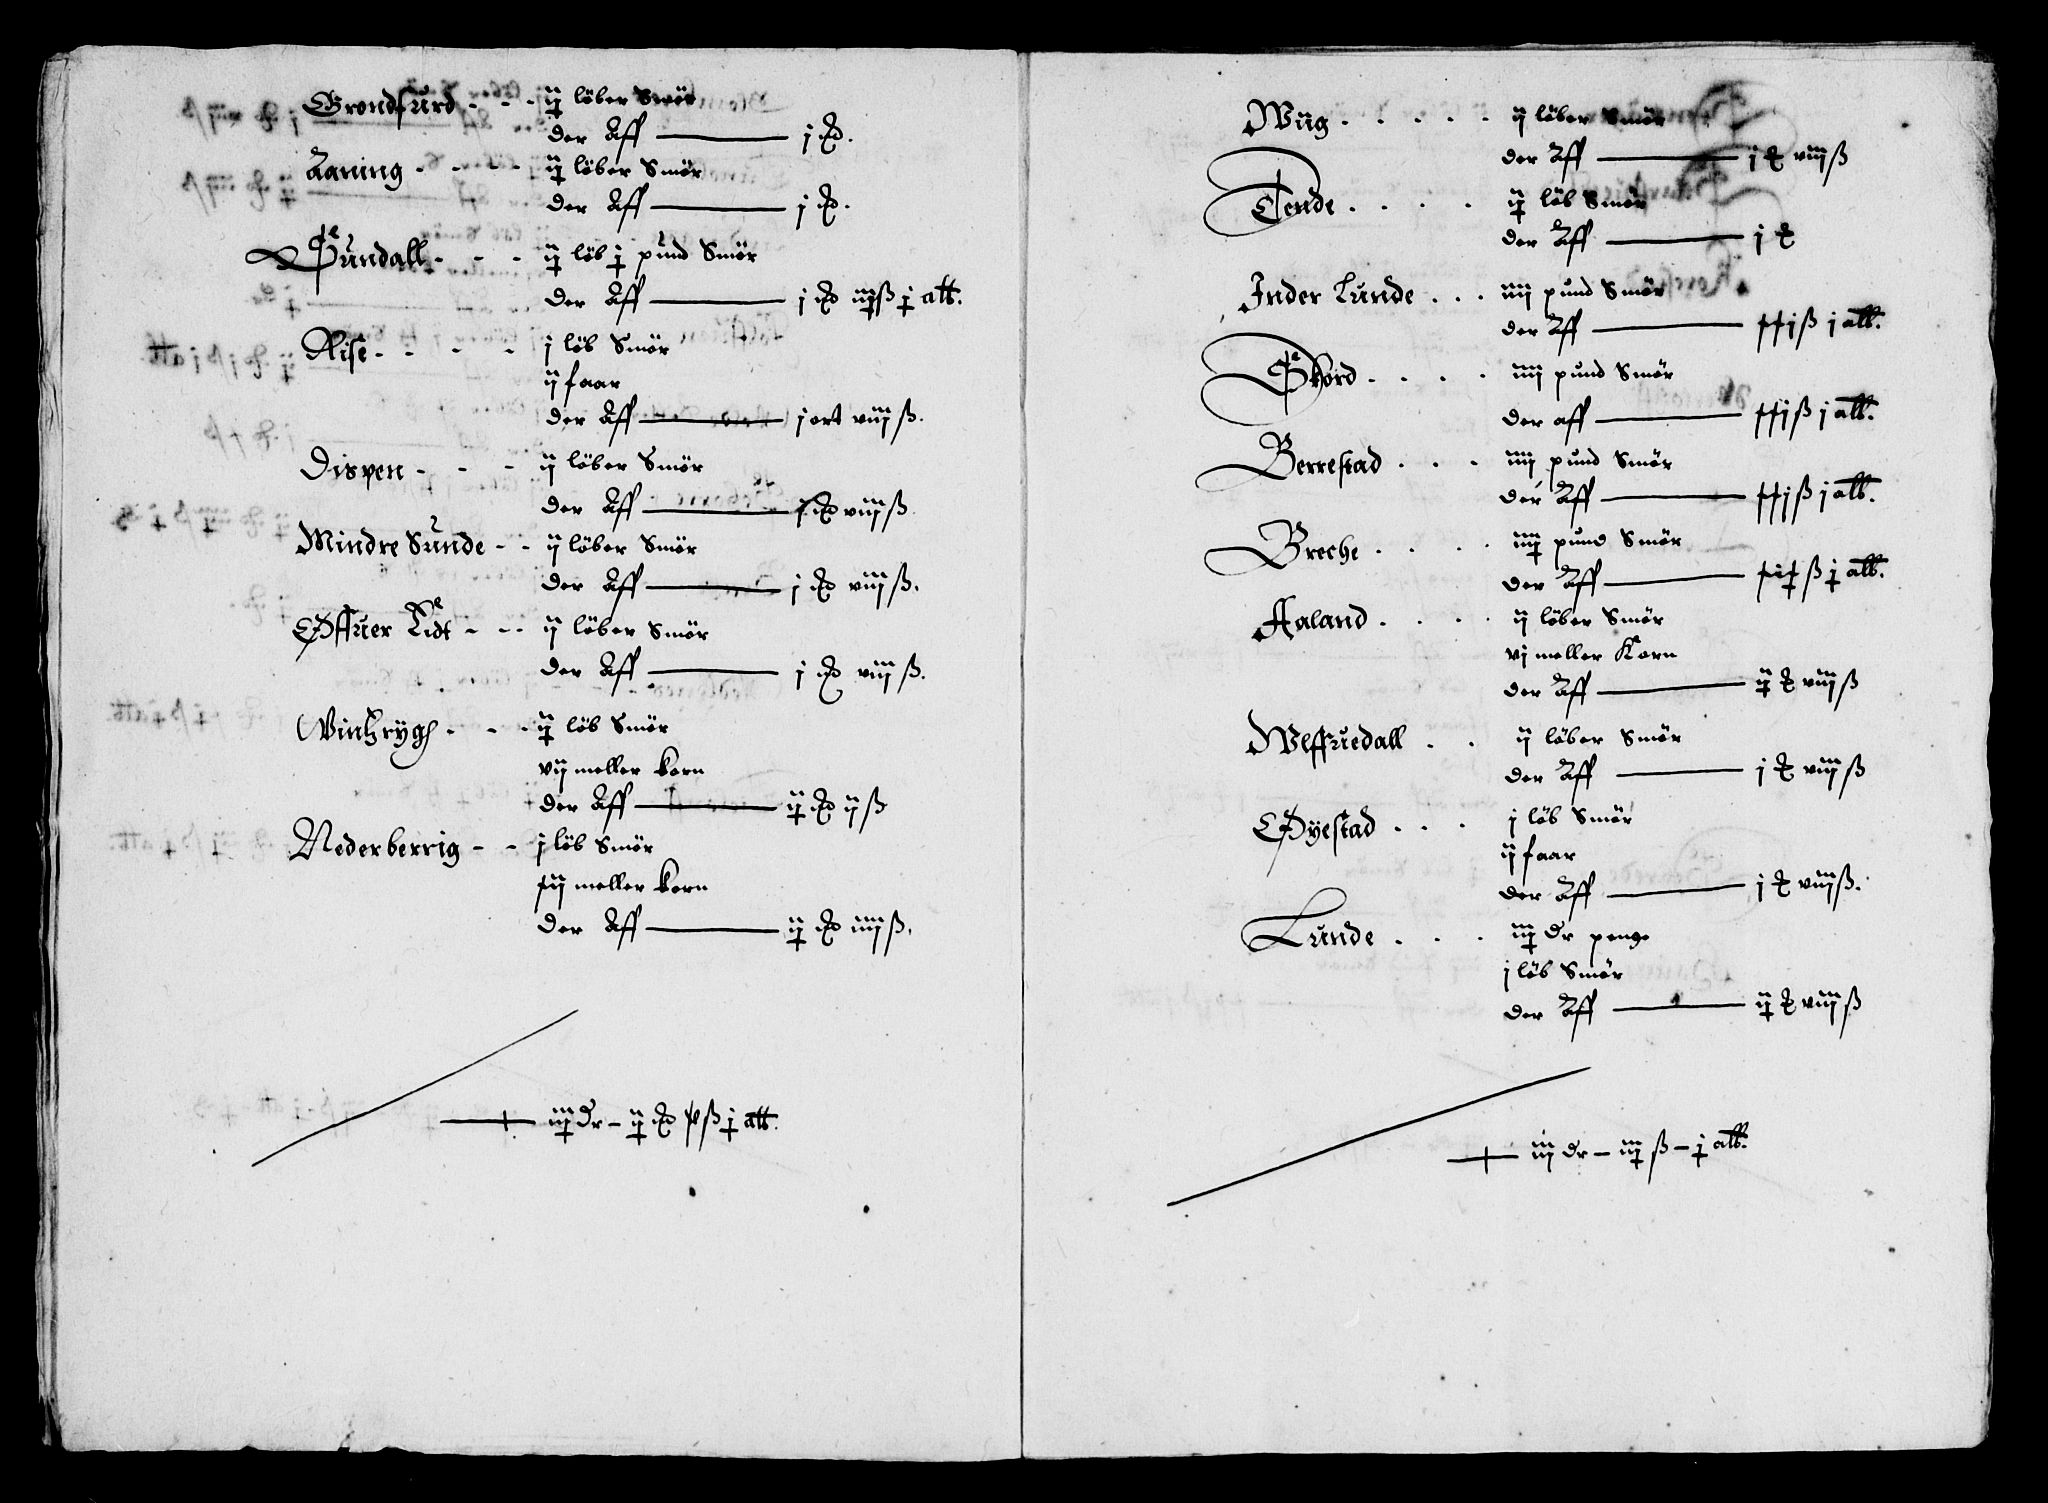 Grondsurd - - - ij löber Smör
der Aff — j
Aaning - - - - ij löber Smör
der Aff — j
Sundall - - - ij löb j pund Smör
der Aff — j iij ß j alb.
Rise - - - - j löb Smör
ij faar
der Aff — j ort viij ß.
Dispen - - - ij löber Smör
der Aff — j viij ß
Mindre Sunde - - ij löber Smör
der Aff — j viij ß.
Øffuer Lidt - - - ij löber Smör
der Aff — j viij ß.
Vinhrygh - - - ij löb Smör
vij meller korn
der Aff — ij ij ß
Nederberrig - - j löb Smör
meller korn
der Aff — ij iiij ß.
iij dr - ij ß j alb.
Wiig . . . . . ij löber Smör
der Aff — j viij ß
Tende . . . . ij löb Smör
der Aff — j
Inder Lunde . . . iiij pund Smör
der Aff — ß j alb.
Skord . . . . iiij pund Smör
der aff — ß j alb.
Berrestad . . . iiij pund Smör
der Aff — ß j alb.
Breche . . . . iiij pund Smör
der Aff — ß j alb.
Aaland . . . . ij löber Smör
vj meller Korn
der Aff — ij viij ß
Wlffuedall . . ij löber Smör
der Aff — j viij ß
Øyestad . . . j löb Smör
ij faar
der Aff — j viij ß.
Lunde . . . iij dr penge
j löb Smör
der Aff — ij viij ß
dr - iij ß - j alb.